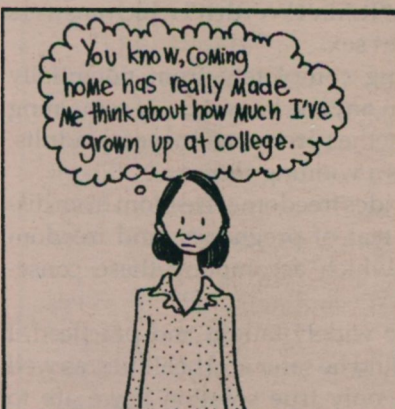 You know, coming
home has really made
me think about how much I've
grown up at college.